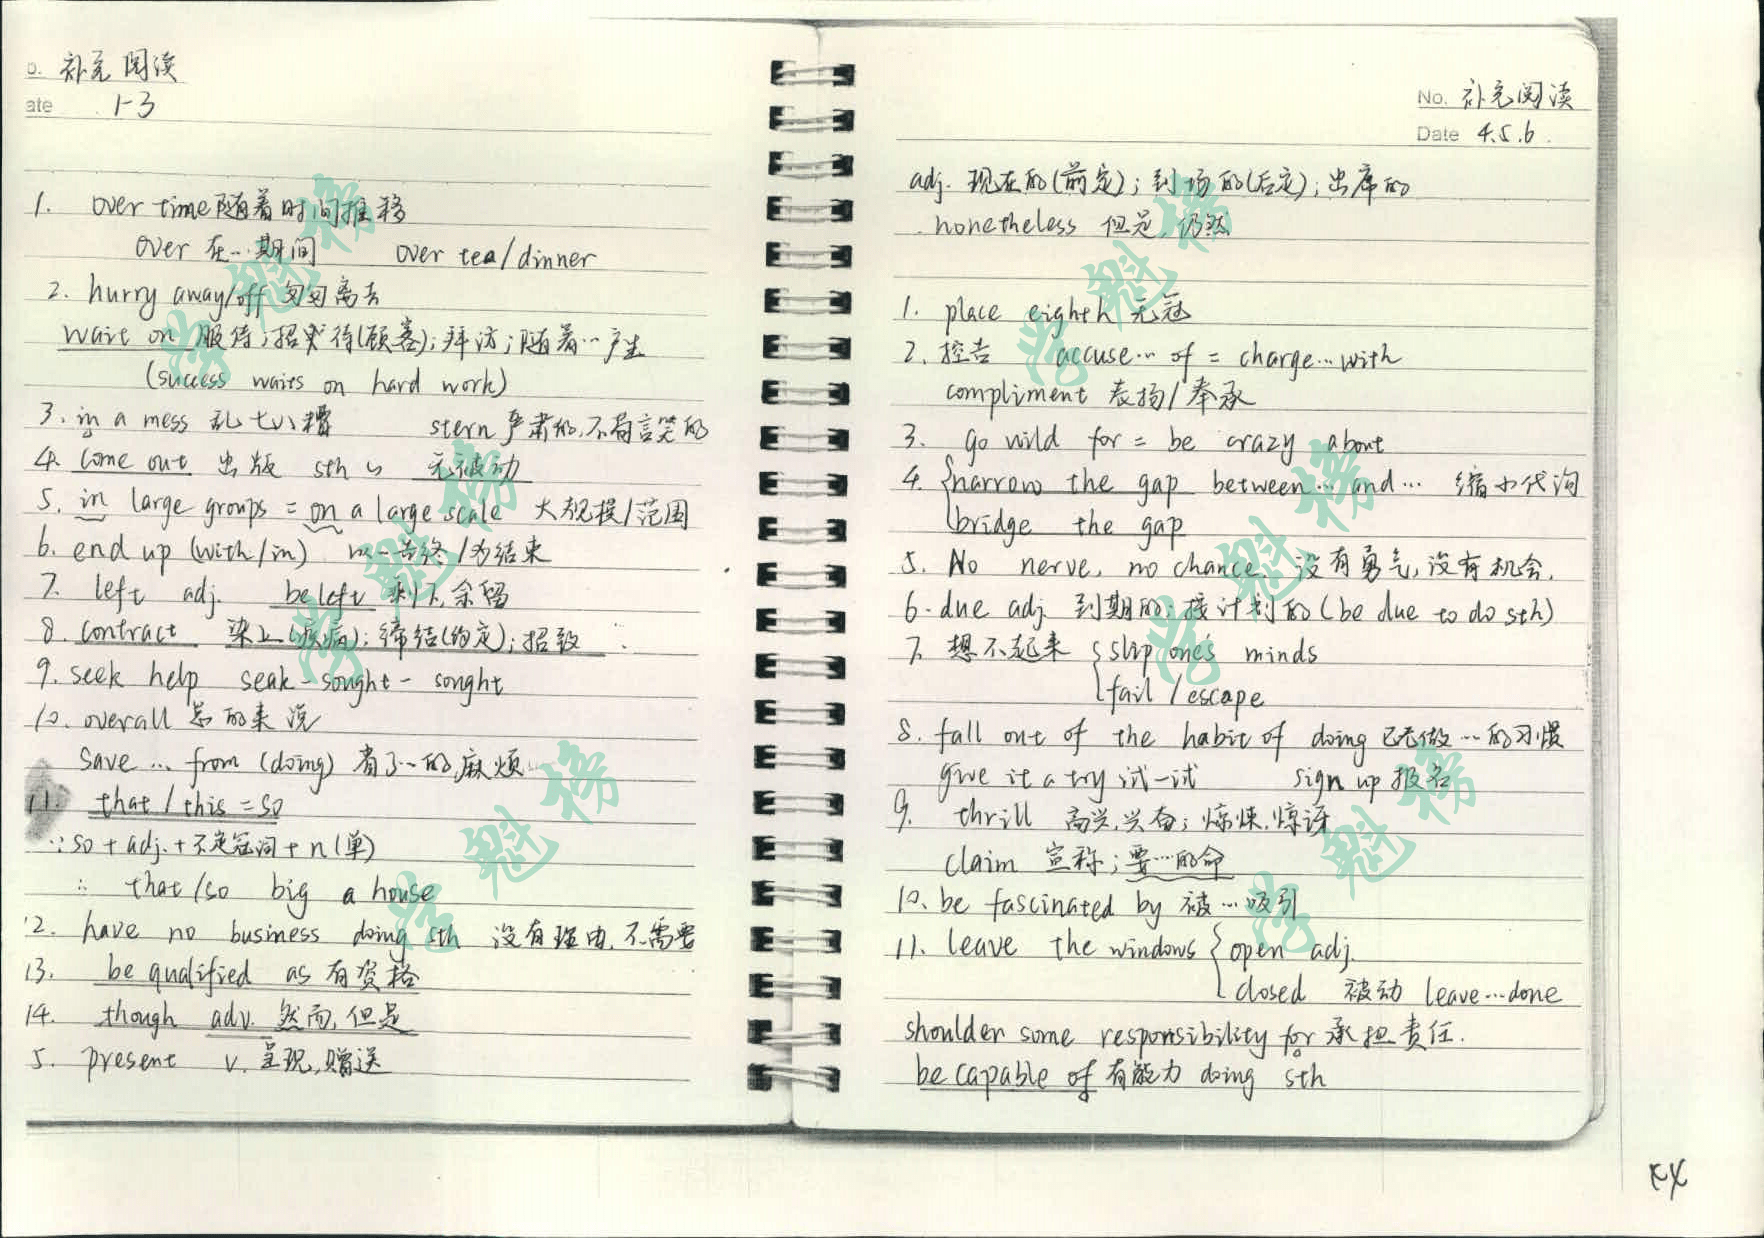 o. 补充阅读
ate 1-3
1. over time 随着时间推移
over 在…期间 over tea/dinner
2. hurry away/off 匆匆离去
wait on 服侍;招待(顾客);拜访;随着…产生
(success waits on hard work)
3. in a mess 乱七八糟 stern 严肃的,不苟言笑的
4. come out 出版 sth 无被动
5. in large groups = on a large scale 大规模/范围
6. end up (with/in) 以…告终/为结束
7. left adj. be left 剩下,余留
8. contract 染上(疾病);缔结(约定);招致
9. seek help seak-sought-sought
10. overall 总的来说
save … from (doing) 省了…的麻烦
11. that/this = so
∵ so + adj. + 不定冠词 + n(单)
∴ that/so big a house
12. have no business doing sth 没有理由,不需要
13. be qualified as 有资格
14. though adv. 然而,但是
5. present v. 呈现,赠送
No. 补充阅读
Date 4.5.6.
adj. 现在的(前定);到场的(后定);出席的
nonetheless 但是,仍然
1. place eighth 无冠
2. 控告 accuse… of = charge…with
compliment 表扬/奉承
3. go wild for = be crazy about
4. narrow the gap between… and… 缩小代沟
bridge the gap
5. No nerve, no chance. 没有勇气,没有机会.
6. due adj. 到期的;按计划的(be due to do sth)
7. 想不起来 slip one's minds
fail/escape
8. fall out of the habit of doing 已无做…的习惯
give it a try 试一试 sign up 报名
9. thrill 高兴,兴奋;惊悚,惊讶
claim 宣称;要…的命
10. be fascinated by 被…吸引
11. leave the windows open adj.
closed 被动 leave…done
shoulder some responsibility for 承担责任.
be capable of 有能力 doing sth
学魁榜
学魁榜
学魁榜
学魁榜
学魁榜
学魁榜